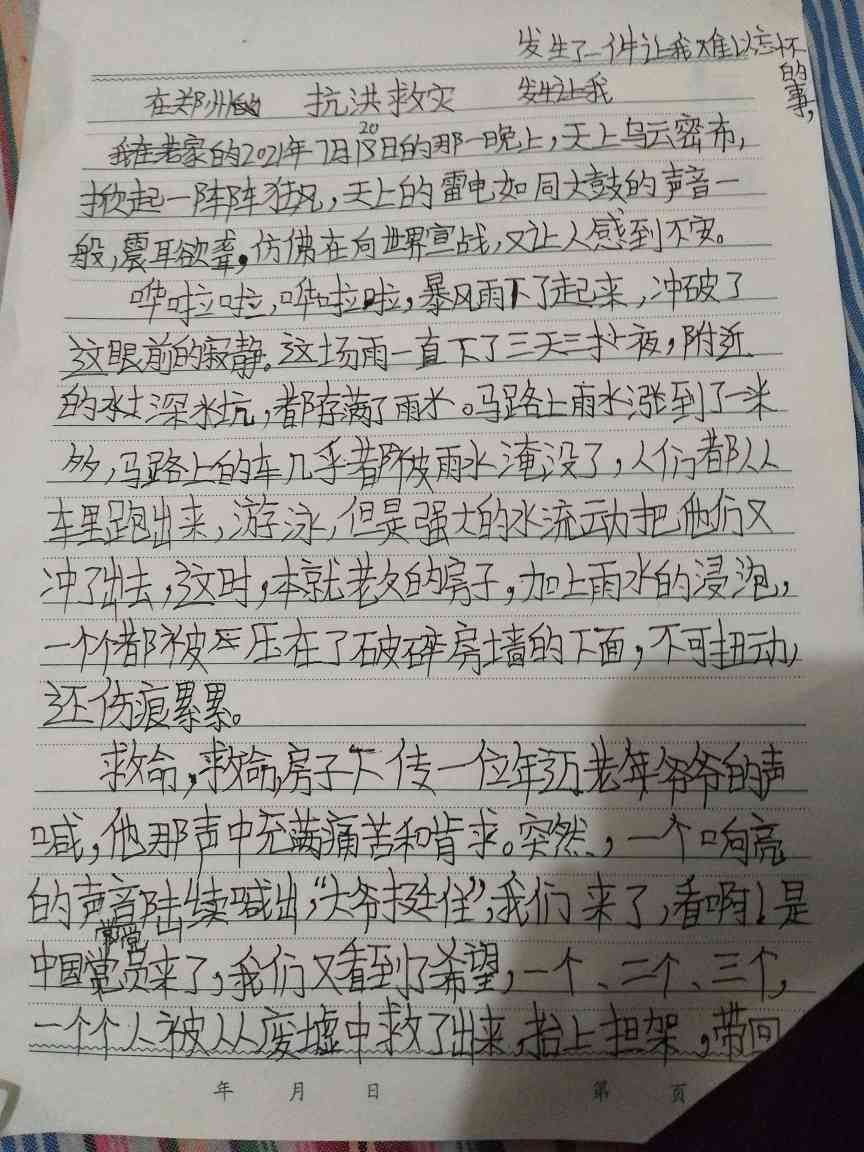 发生了一件让我难以忘怀
的事,
在郑州的 抗洪救灾 发生让我
20
我在老家的2021年7月18日的那一晚上,天上乌云密布,
掀起一阵阵狂风,天上的雷电如同大鼓的声音一
般,震耳欲聋。仿佛在向世界宣战,又让人感到不安。
哗啦啦,哗啦啦,暴风雨下了起来,冲破了
这眼前的寂静。这场雨一直下了三天三夜,附近
的水深水坑,都存满了雨水。马路上雨水涨到了一米
多,马路上的车几乎都被雨水淹没了,人们都从
车里跑出来,游泳,但是强大的水流动把他们又
冲了出去,这时,本就老久的房子,加上雨水的浸泡,
一个个都被压在了破碎房墙的下面,不可扭动,
还伤痕累累。
救命,救命,房子下传一位年迈老年爷爷的声
喊,他那声中充满痛苦和肯求。突然,一个响亮
的声音陆续喊出,“大爷挺住”,我们来了,看啊!是
党
中国党员来了,我们又看到了希望,一个、二个、三个,
一个个人被从废墟中救了出来,抬上担架,带回
年 月 日 第 页